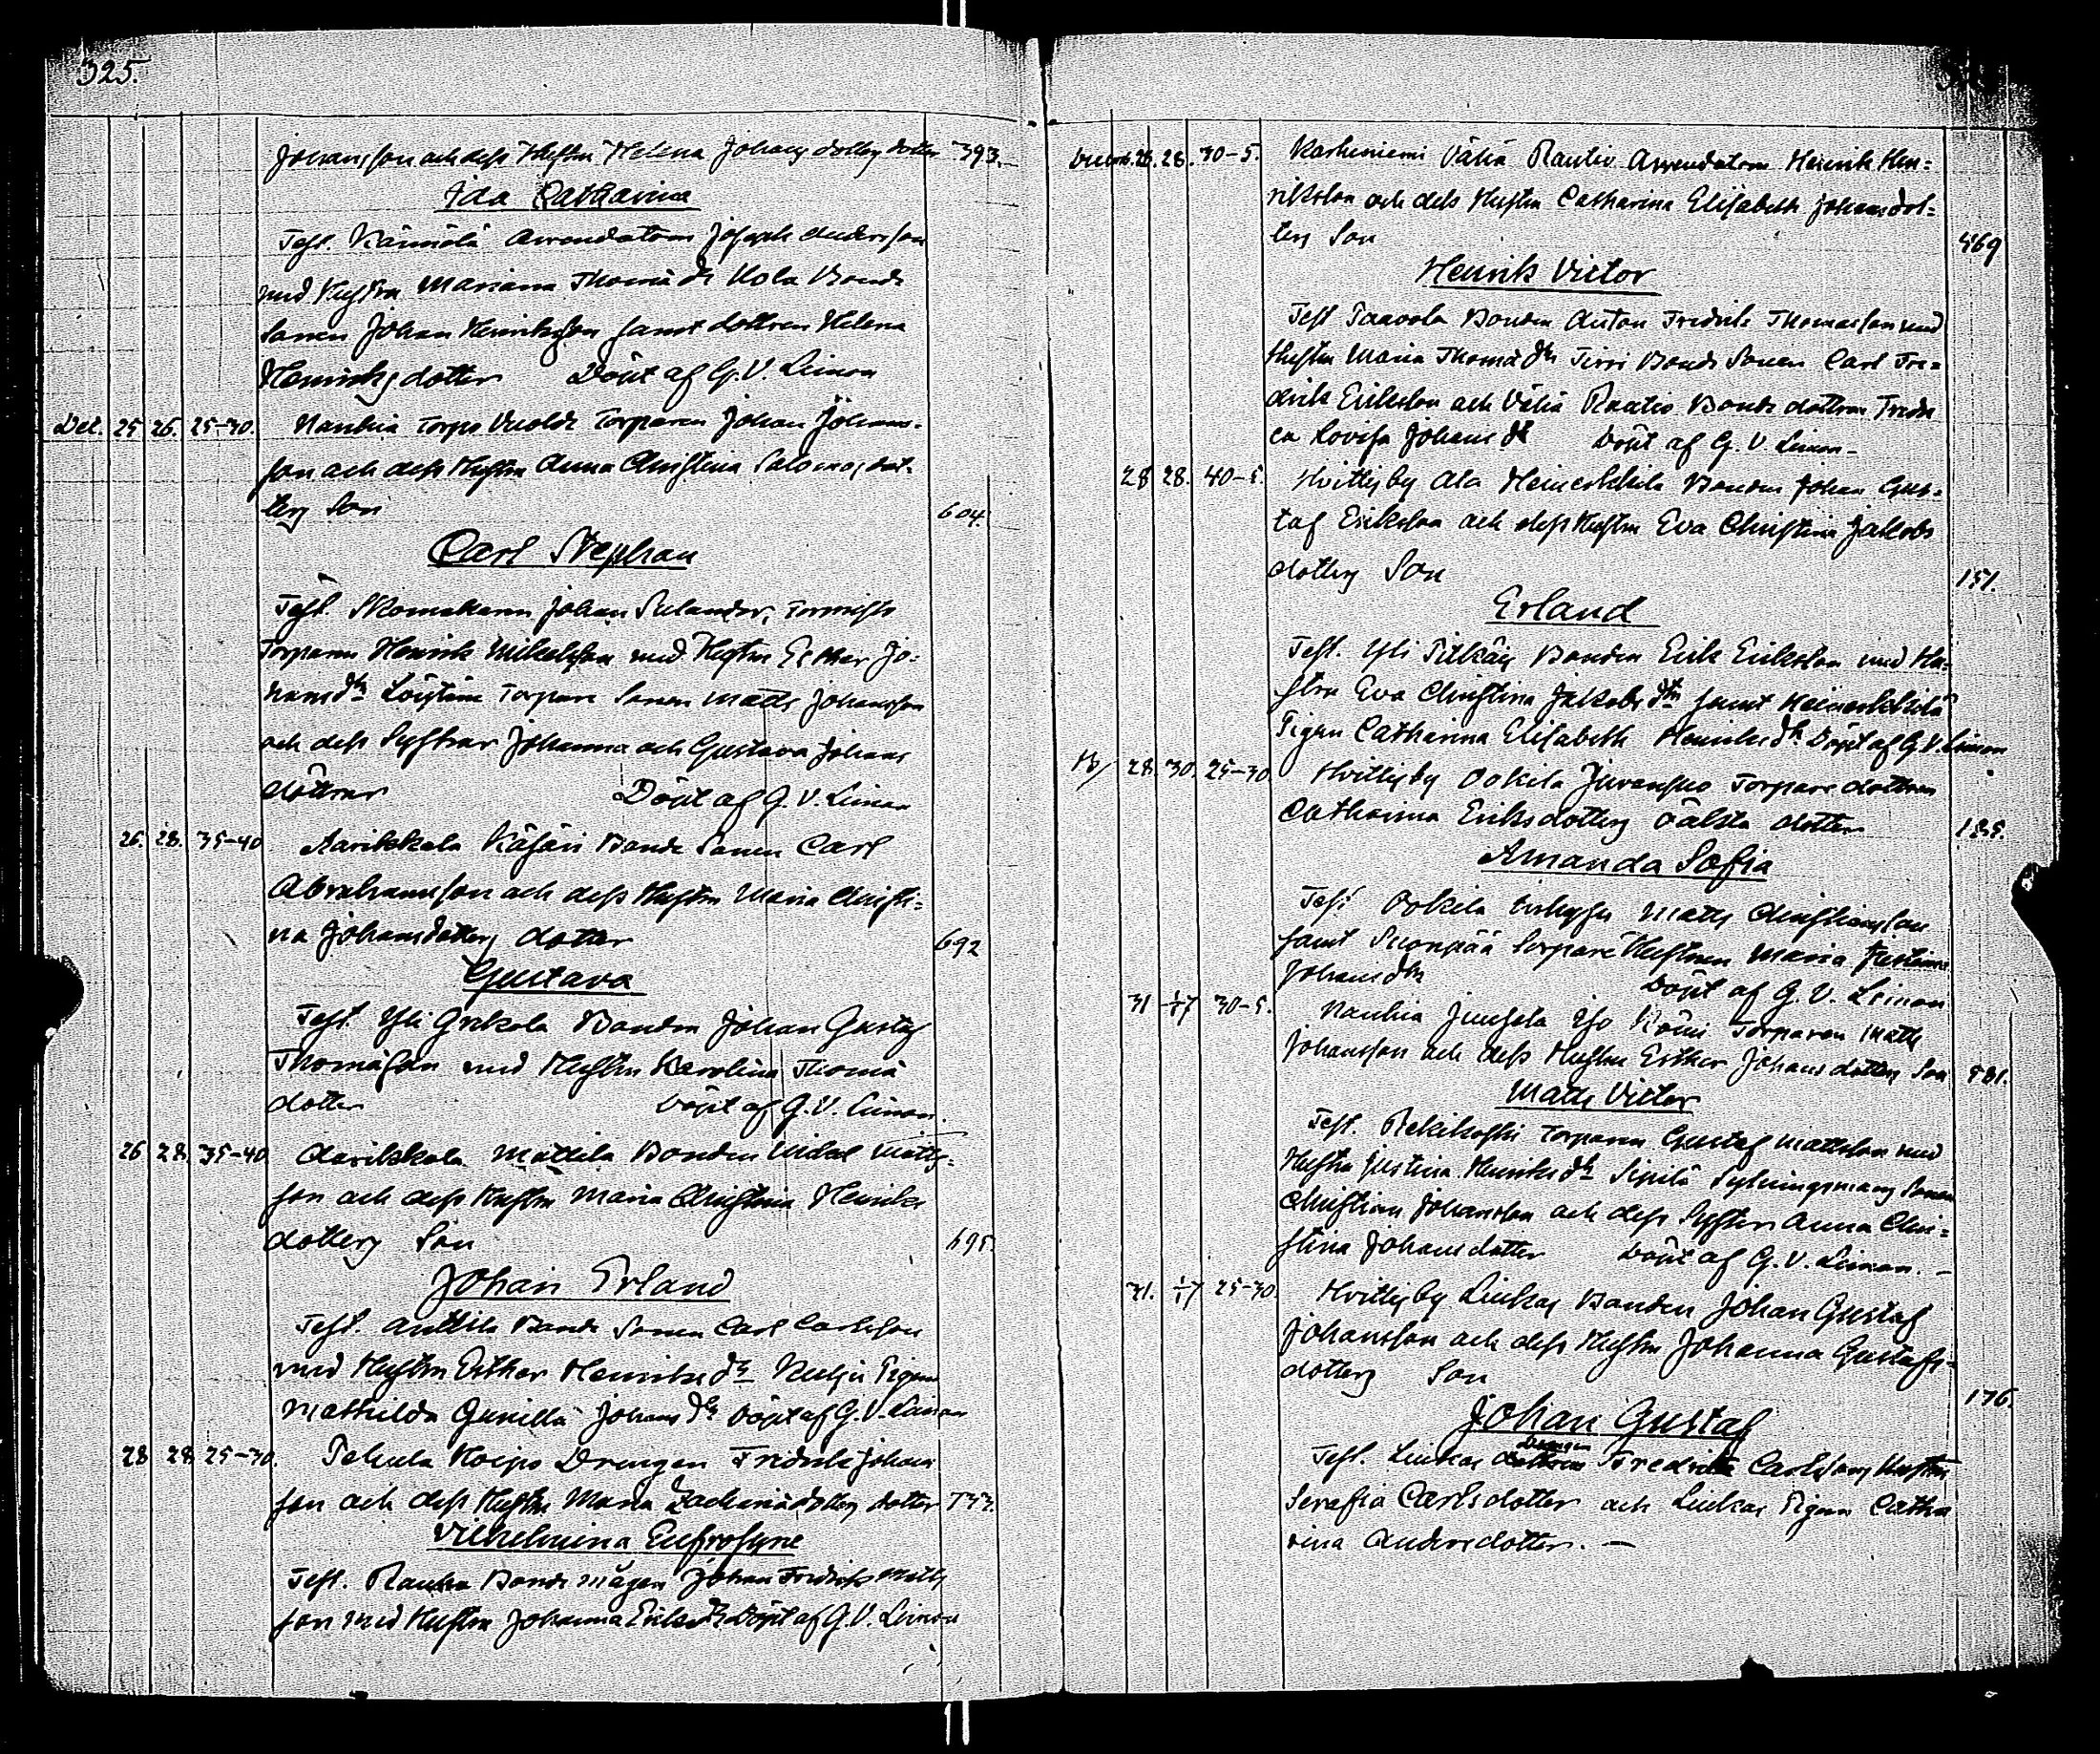 325.
Johansson och dess Hustru Helena Johans dotters dotter 393.
Ida Catharina
Test. Kännölä Arrendatorn Joseph Andersson
med Hustru Mariana Thomä dr Kola Bonde
Sonen Johan Henriksson samt dottren Helena
Henriks dotter Döpt af G. V. Limon
Dec. 25 26. 25-30. Nanhia Torps Torparen Johan Johans-
son och dess Hustru Anna Christina Salomos dot-
ters Son 604
Carl Stephan
Test. Skomakaren Johan Selander,
Torparen Henrik Mikelsson med Hustru Esther Jo-
hans dr Löytäne Torpare Sonen Matts Johansson
och dess Systrar Johanna och Gustava Johans
döttrar Döpt af G. V. Limon
26. 28. 35-40 Aarikkala Käfäri Bonde Sonen Carl
Abrahamsson och dess Hustru Maria Christi-
na Johansdotters dotter 692
Gustava
Test. Yli Grekola Bonden Johan Gustaf
Thomasson med Hustru Karolina Thomä
dotter Döpt af G. V. Limon.
26 28. 35-40 Aarikkala Mattila Bonden Mikel Matts-
son och dess Hustru Maria Christina Henriks
dotters Son 695.
Johan Erland
Test. Anttila Bonde Sonen Carl Carlsson
med Hustru Esther Henriks dr Pigan
Mathilda Gunilla Johans dr Döpt af G. V. Limon
28 28 25-30. Pehula Koipo Drengen Fredrik Johans
son och dess Hustru Maria Zachariädotters dotter 733.
Vilhelmina Eufrosyne
Test. Rauha Bonde mågen Johan Fredrik Matts
son med Hustru Johanna Eriks dr Döpt af G. V. Limon
26. 28. 30-5. Karhiniemi Vähä Rautio Arrendatorn Henrik Hen-
riksson och dess Hustru Catharina Elisabeth Johansdot-
ters Son 469
Henrik Victor
Test Paavola Bonden Anton Fredrik Thomasson med
Hustru Maria Thomä dtr Jirri Bonde Sonen Carl Fre-
drik Eriksson och Vähä Rautio Bonde dottren Fredri
ca Lovisa Johans dr Döpt af G. V. Limon -
28 28. 40-5. Hvittisby Ala Heinekkilä Bonden Johan Gus-
taf Eriksson och dess Hustru Eva Christina Jakobs
dotters Son 151.
Erland
Test. Yli Pitkäy Bonden Erik Eriksson med Hu-
stru Eva Christina Jakobs dtr samt Heinekkilä
Pigan Catharina Elisabeth Henriks dr Döpt af G. V. Limon
28. 30. 25-30. Hvittisby Ookila Juvansuo Torpare dottren
Catharina Eriksdotters oäkta dotter 185.
Amanda Sofia
Test Ookila Inhyses Matts Christiansson
samt Suonpää Torpare Hustrun Maria Justina
Johans dtr Döpt af G. V. Limon
31 1/17 30-5. Nanhia Junsala Iso Römi Torparen Matts
Johansson och dess Hustru Esther Johans dotters Son 581.
Matts Victor
Test. Rekikoski Torparen Gustaf Mattsson med
Hustru Justina Henriks dr Sipilä Sytningsmans Sonen
Christian Johansson och dess Syster Anna Chri-
stina Johans dotter Döpt af G. V. Limon. -
31. 1/17 25-30. Hvittisby Linkas Bonden Johan Gustaf
Johansson och dess Hustru Johanna Gustafs-
dotters Son 176.
Johan Gustaf
Test. Linkas Drengen Fredrik Carlssons Hustru
Serafia Carlsdotter och Linkas Pigan Catha
rina Andersdotter. -